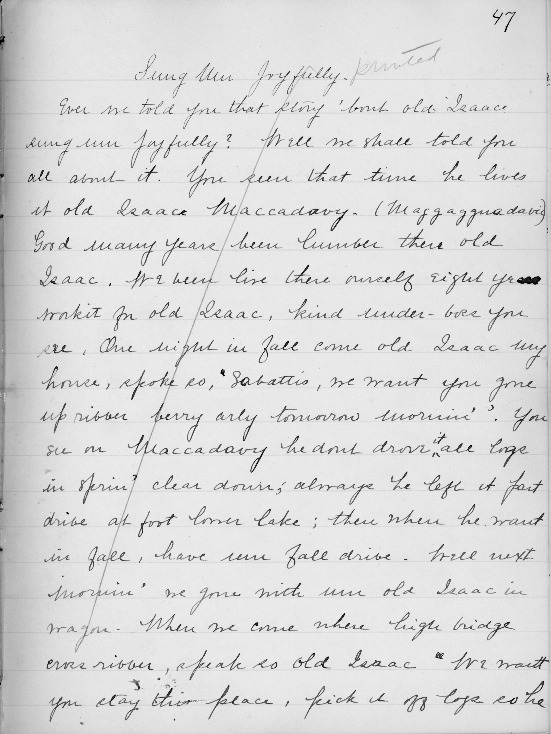 47
Sung Um Joyfully. printed
Ever we told you that story 'bout old Isaac
sung um joyfully? Well we shall told you
all about it. You seen that time he lives
it old Isaac Maccadavy. (Maggaguadavic)
Good many years been lumber there old
Isaac. We been live there ourself eight years
workit for old Isaac, kind under-boss you
see. One night in fall come old Isaac my
house, spoke so, "Sabattis, we want you gone
up ribber berry arly tomorrow mornin'". You
see on Maccadavy he dont drove it all logs
in sprin' clear down; always he left it part
drive at foot lower lake; then when he want
in fall, have um fall drive. Well next
mornin' we gone with um old Isaac in
wagon. When we come where high bridge
cross ribber, speak so old Isaac "We want
you stay this place, pick it off logs so he